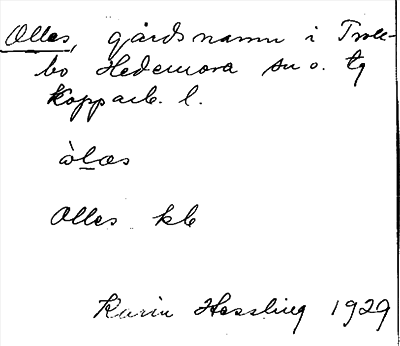 Olles, gårdsnamn i Trolle-
bo Hedemora sn o. tg
Kopparb. l.
òlæs
Olles kb
Karin Hessling 1929